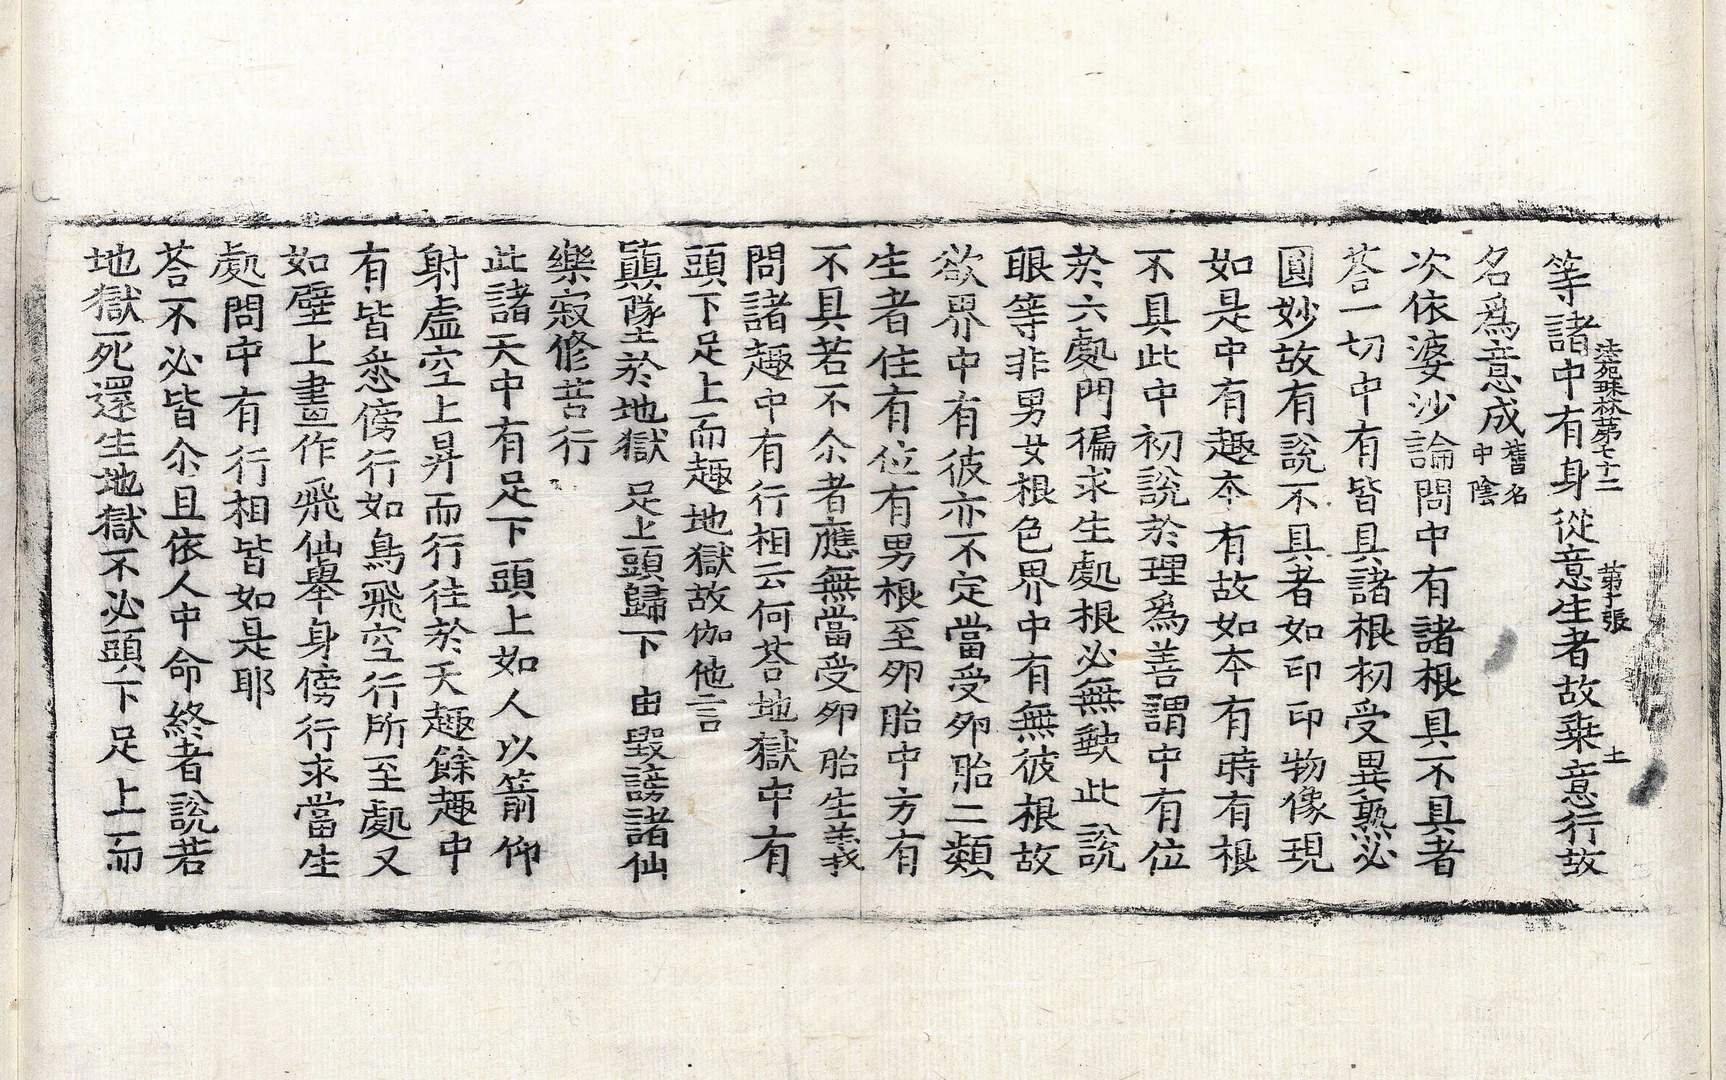 法苑珠林第七十二　第十張　土
等諸中有身從意生者故乗意行故
名爲意成舊名中陰
次依婆沙論問中有諸根具不具者
荅一切中有皆具諸根初受異熟必
圓妙故有說不具者如印印物像現
如是中有趣本有故如本有時有根
不具此中初說於理爲善謂中有位
於六處門徧求生處根必無缺此說
眼等非男女根色界中有無彼根故
欲界中有彼亦不定當受卵胎二類
生者住有位有男根至卵胎中方有
不具若不尒者應無當受卵胎生義
問諸趣中有行相云何荅地獄中有
頭下足上而趣地獄故伽他言
顛墜於地獄　足上頭歸下　由毀謗諸仙
樂寂修苦行
此諸天中有足下頭上如人以箭仰
射虛空上昇而行往於天趣餘趣中
有皆悉傍行如鳥飛空行所至處又
如壁上畫作飛仙舉身傍行求當生
處問中有行相皆如是耶
荅不必皆尒且依人中命終者說若
地獄死還生地獄不必頭下足上而